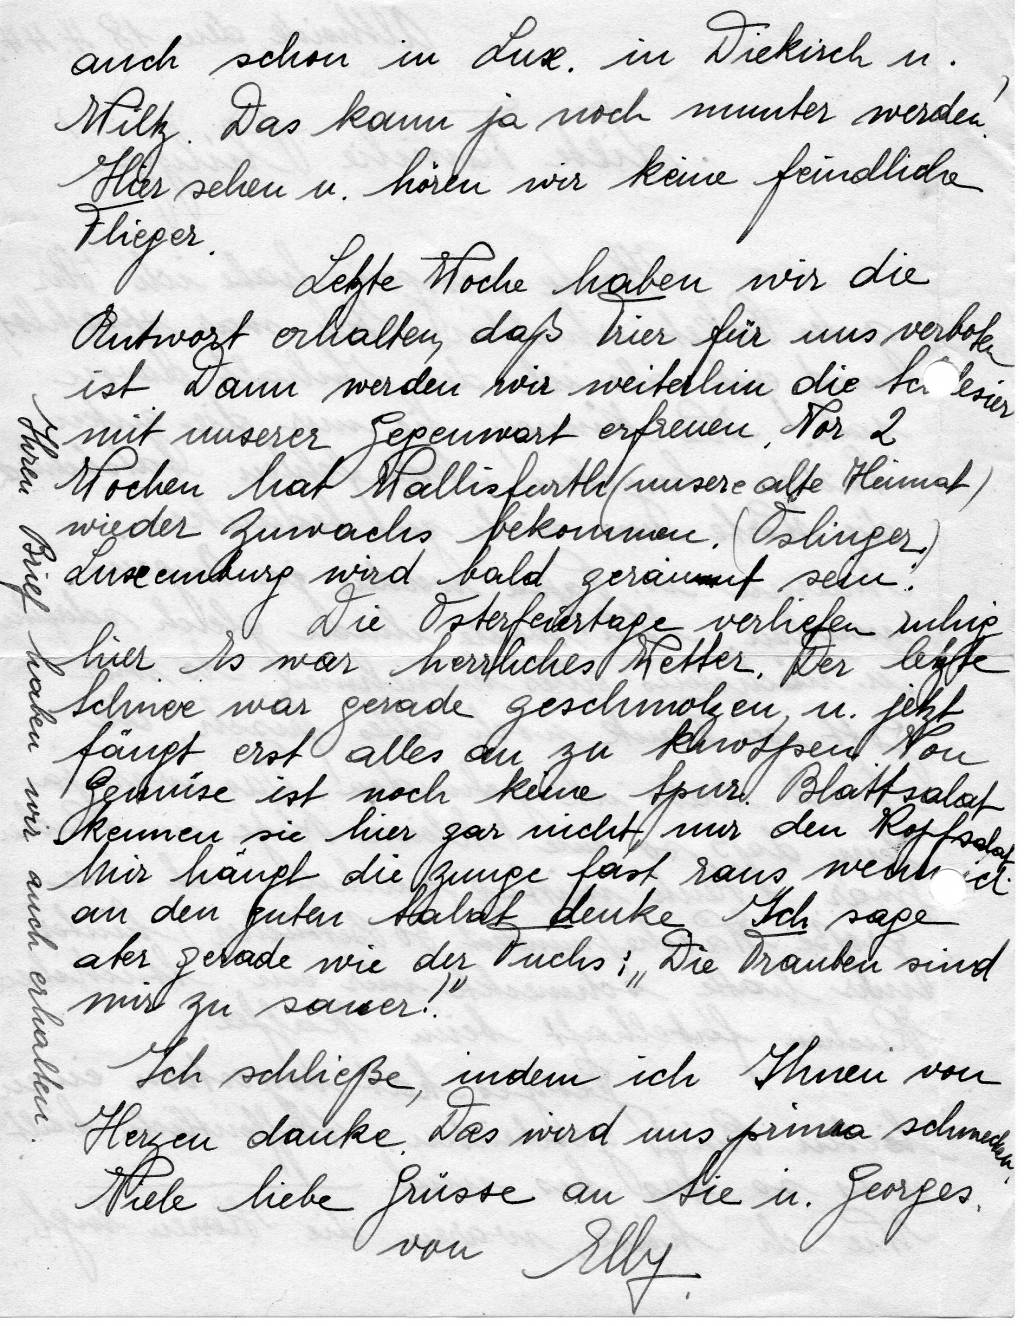 auch schon in Lux. in Diekirch u.
Wiltz. Das kann ja noch munter werden!
Hier sehen u. hören wir keine feindliche
Flieger.
Letzte Woche haben wir die
Antwort erhalten, daß Trier für uns verboten
ist. Dann werden wir weiterhin die Schlesier
mit unserer Gegenwart erfreuen. Vor 2
Wochen hat Wallisfurth (unsere alte Heimat)
wieder Zuwachs bekommen. (Öslinger.)
Luxemburg wird bald geräumt sein!
Die Osterfeiertage verliefen ruhig
hier. Es war herrliches Wetter. Der letzte
Schnee war gerade geschmolzen, u. jetzt
fängt erst alles an zu knospen. Von
Gemüse ist noch keine Spur. Blattsalat
kennen sie hier gar nicht, nur den Kopfsalat.
Mir hängt die Zunge fast raus wenn ich
an den guten Salat denke. Ich sage
aber gerade wie der Fuchs: "Die Trauben sind
mir zu sauer!"
Ich schließe, indem ich Ihnen von
Herzen danke. Das wird uns prima schmecken.
Viele liebe Grüsse an Sie u. Georges.
von Elly.
Ihren Brief haben wir auch erhalten.